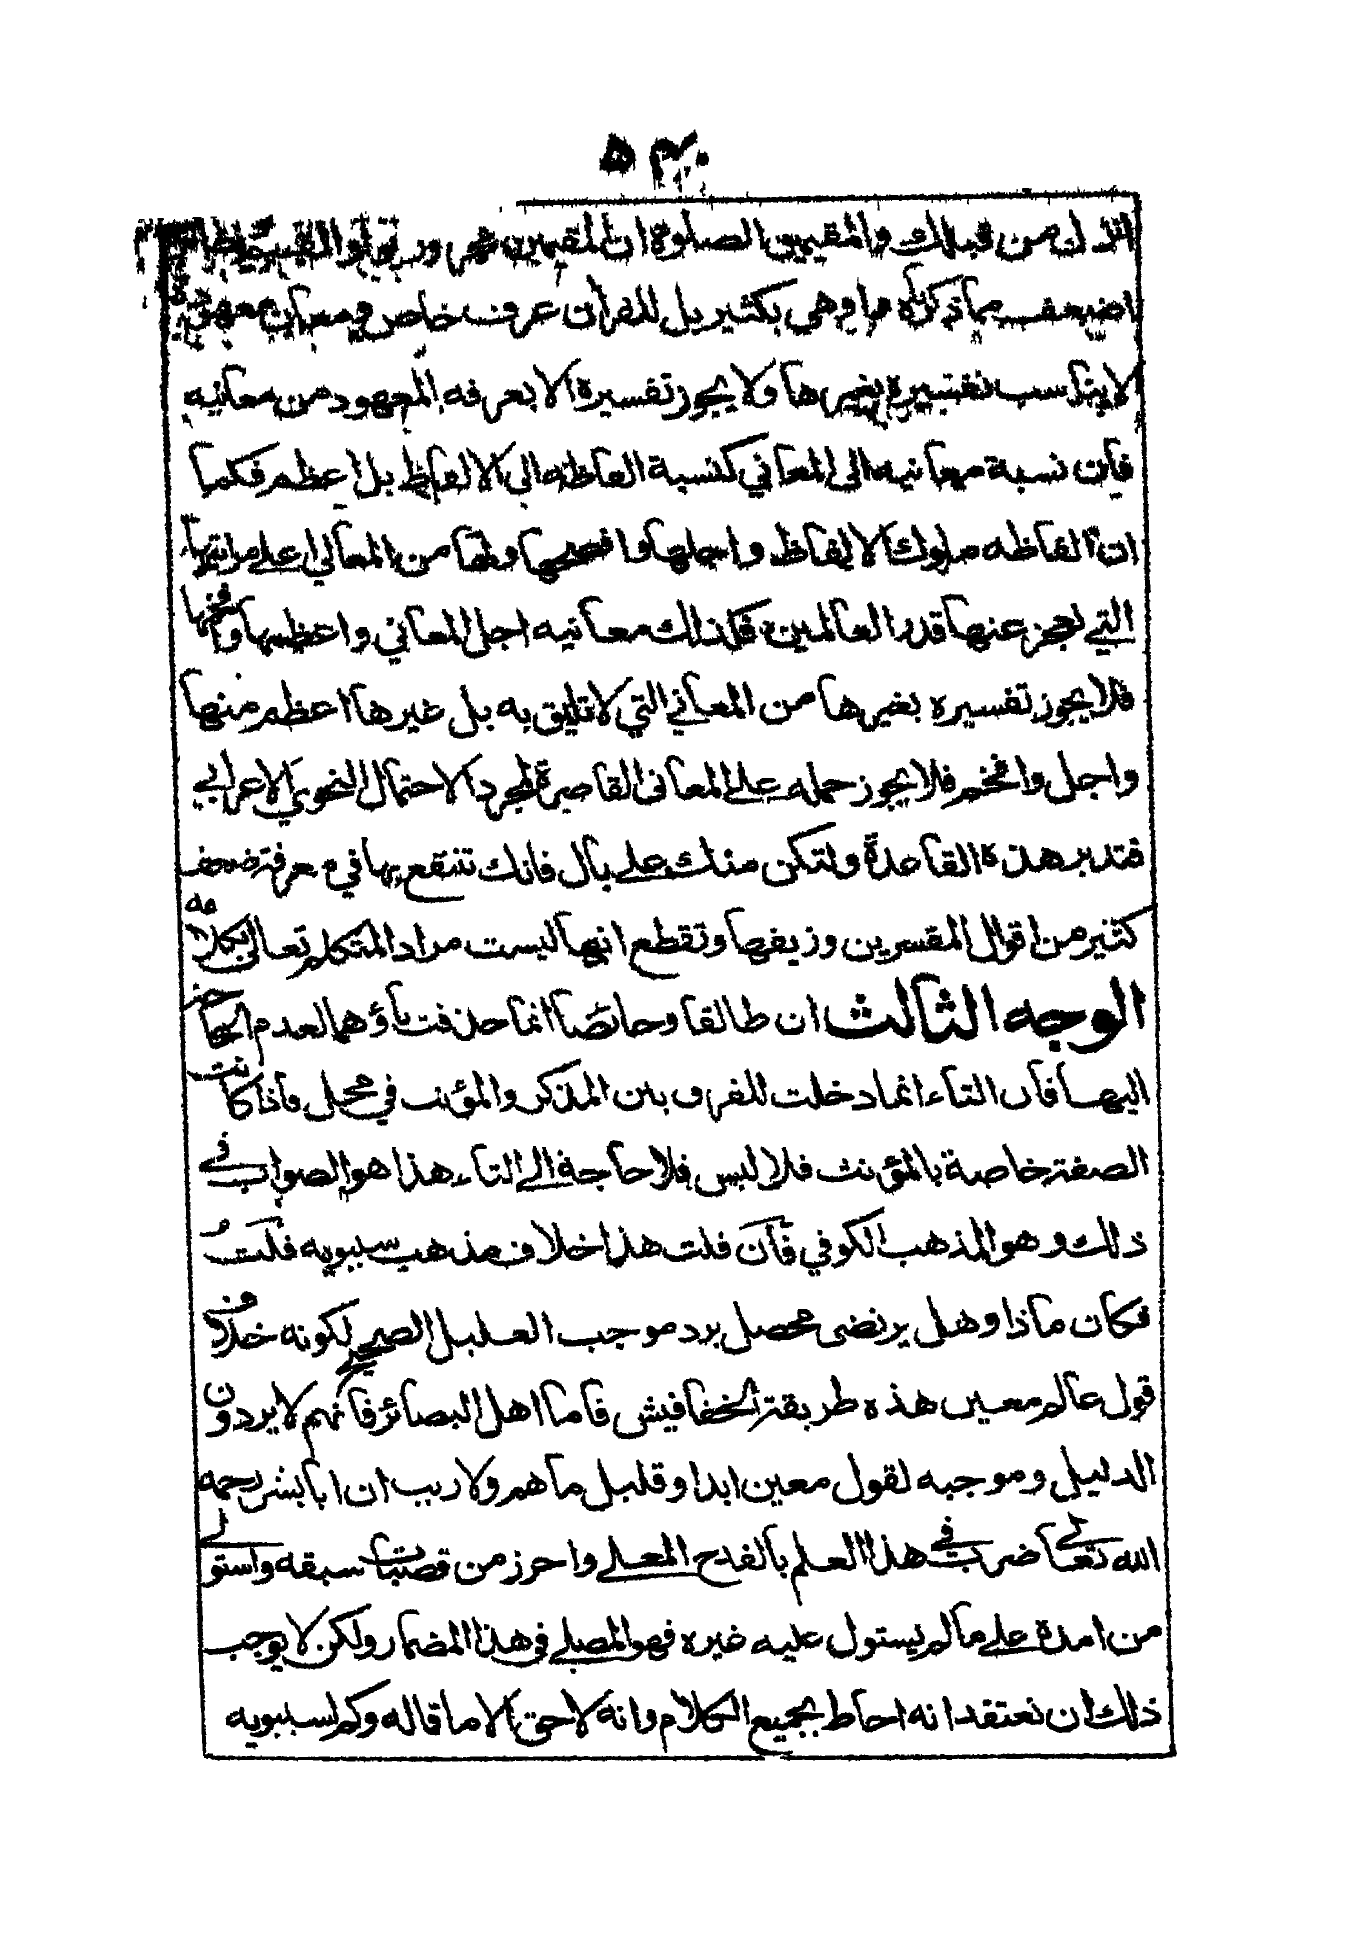 ٥٣٠
انزل من قبلك والمقيمين الصلوة ان المقيمين مجرور بواو القسم
اضعف مما ذكرناه ما وهي بكثير بل للقران عرف خاص ومعان معهودة
لا يناسب تفسيره بغيرها ولا يجوز تفسيره الا بعرفه المعهود من معانيه
فان نسبة معانيه الى المعاني كنسبة الفاظه الي الالفاظ بل اعظم فكما
ان الفاظه ملوك الالفاظ واجلها وافصحها ولها من المعاني اعلى مراتبها
التي يعجز عنها قدر العالمين فكذلك معانيه اجل المعاني واعظمها وافخمها
فلا يجوز تفسيره بغيرها من المعاني التي لا تليق به بل غيرها اعظم منها
واجل وافخم فلا يجوز حمله على المعاني القاصرة لمجرد الاحتمال النحوي الاعرابي
فتدبر هذه القاعدة ولتكن منك على بال فانك تنتفع بها في معرفة ضعف
كثير من اقوال المفسرين وزيفها وتقطع انها ليست مراد المتكلم تعالى بكلامه
الوجه الثالث ان طالقا وحائضا انما حذفت تاؤهما لعدم الحاجة
اليها فان التاء انما دخلت للفرق بين المذكر والمؤنث في محل فاذا كانت
الصفة خاصة بالمؤنث فلا لبس فلا حاجة الى التاء هذا هو الصواب في
ذلك وهو المذهب الكوفي فان قلت هذا خلاف مذهب سيبويه قلت
فكان ماذا وهل يرتضى محصل برد موجب العليل الصحيح لكونه خلاف
قول عالم معين هذه طريقة الخفافيش فاما اهل البصائر فانهم لا يردون
الدليل وموجبه لقول معين ابدا وقليل ما هم ولا ريب ان ابا بشر رحمه
الله تعالى ضرب في هذا العلم بالقدح المعلى واحرز من قصبات سبقه واستولى
من امده على ما لم يستول عليه غيره فهو المصلي في هذا المضمار ولكن لا يوجب
ذلك ان نعتقد انه احاط بجميع الكلام وانه لا حق الا ما قاله وكم لسيبويه